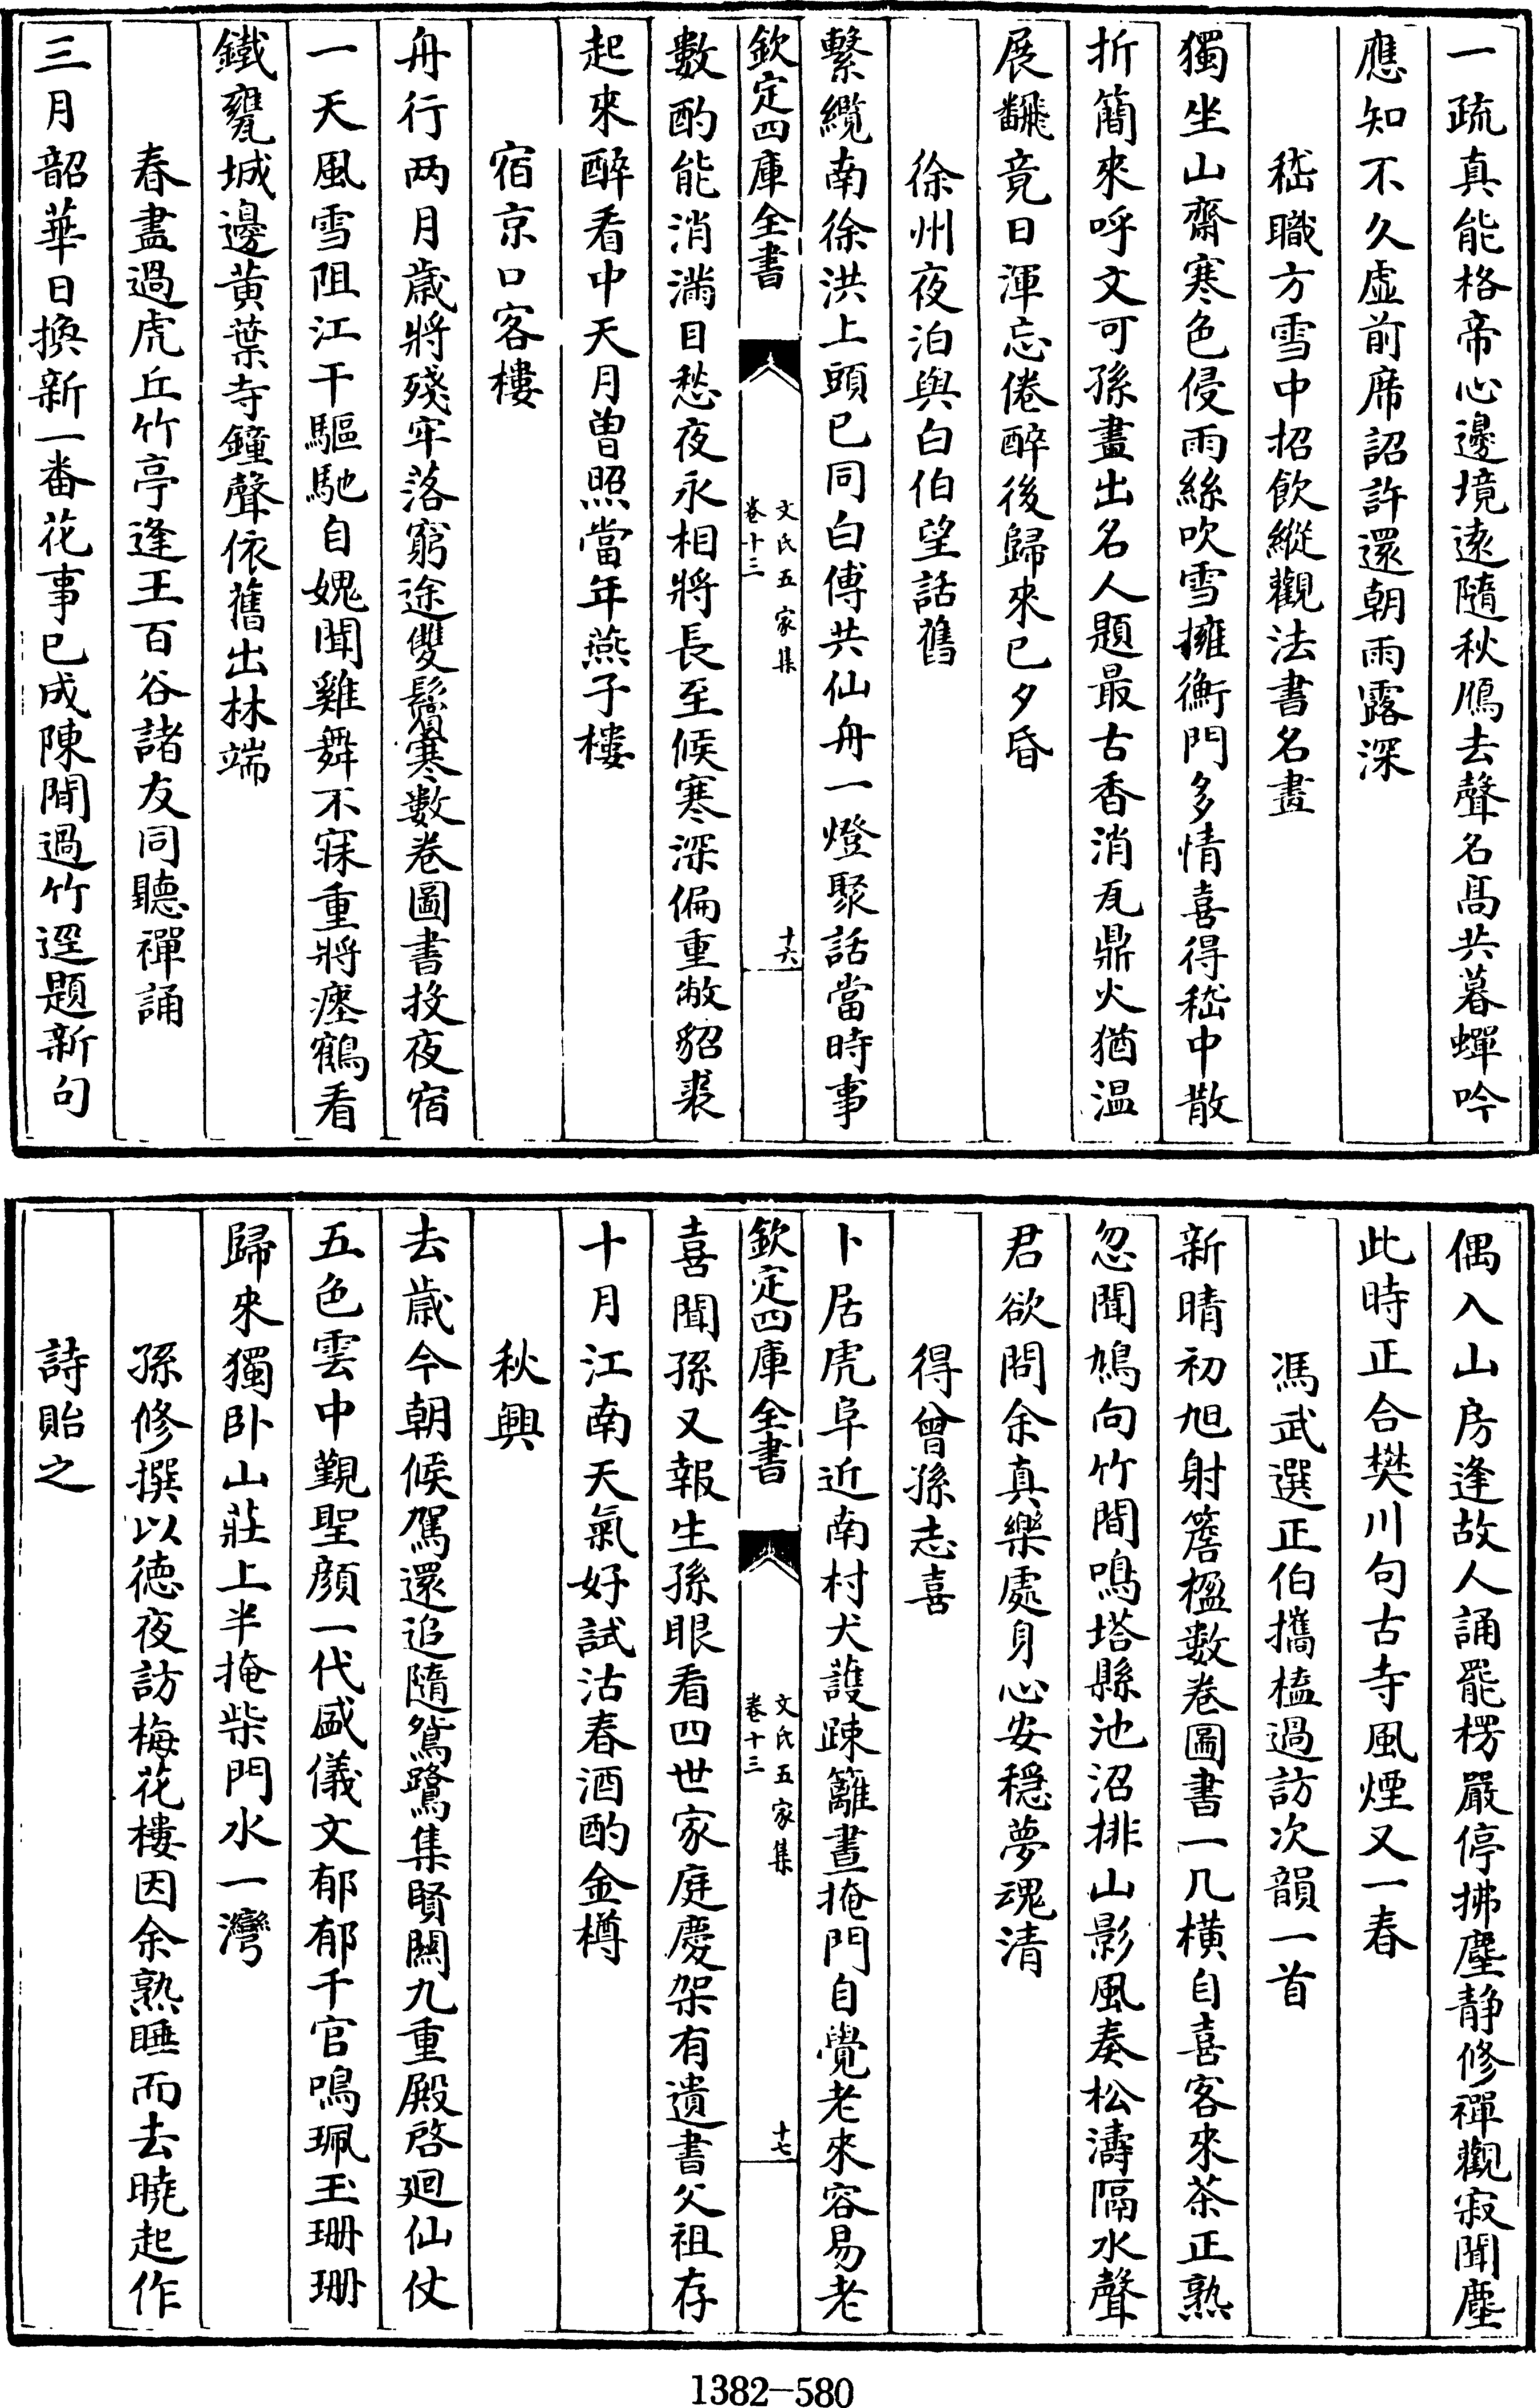 一疏真能格帝心邊境遠隨秋鴈去聲名髙共暮蟬吟
應知不久虛前席詔許還朝雨露深
嵇職方雪中招飲縱觀法書名畫
獨坐山齋寒色侵雨絲吹雪擁衡門多情喜得嵇中散
折簡來呼文可孫畫出名人題最古香消瓦鼎火猶温
展飜竟日渾忘倦醉後歸來已夕昏
徐州夜泊與白伯望話舊
繫纜南徐洪上頭已同白傅共仙舟一燈聚話當時事
欽定四庫全書
文氏五家集
卷十三
十六
數酌能消滿目愁夜永相將長至候寒深偏重敝貂裘
起來醉看中天月曽照當年燕子樓
宿京口客樓
舟行两月歲將殘牢落窮途雙鬢寒數卷圖書投夜宿
一天風雪阻江干驅馳自媿聞雞舞不寐重將瘞鶴看
鐵甕城邊黄葉寺鐘聲依舊出林端
春盡過虎丘竹亭逢王百谷諸友同聽禪誦
三月韶華日換新一番花事已成陳閒過竹逕題新句
偶入山房逢故人誦罷楞嚴停拂塵静修禪觀寂聞塵
此時正合樊川句古寺風煙又一春
馮武選正伯攜榼過訪次韻一首
新晴初旭射簷楹数卷圖書一几橫自喜客來茶正熟
忽聞鳩向竹間鳴塔縣池沼排山影風奏松濤隔水聲
君欲問余真樂處身心安穏夢魂清
得曾孫志喜
卜居虎阜近南村犬䕶疎籬晝掩門自覺老來容易老
欽定四庫全書
文氏五家集
卷十三
十七
喜聞孫又報生孫眼看四世家庭慶架有遺書父祖存
十月江南天氣好試沽春酒酌金樽
秋興
去歳今朝候駕還追隨鴛鷺集賢闗九重殿啓廻仙仗
五色雲中覲聖顔一代盛儀文郁郁千官鳴珮玉珊珊
歸來獨卧山莊上半掩柴門水一灣
孫修撰以徳夜訪梅花樓因余熟睡而去曉起作
詩貽之
1382-580